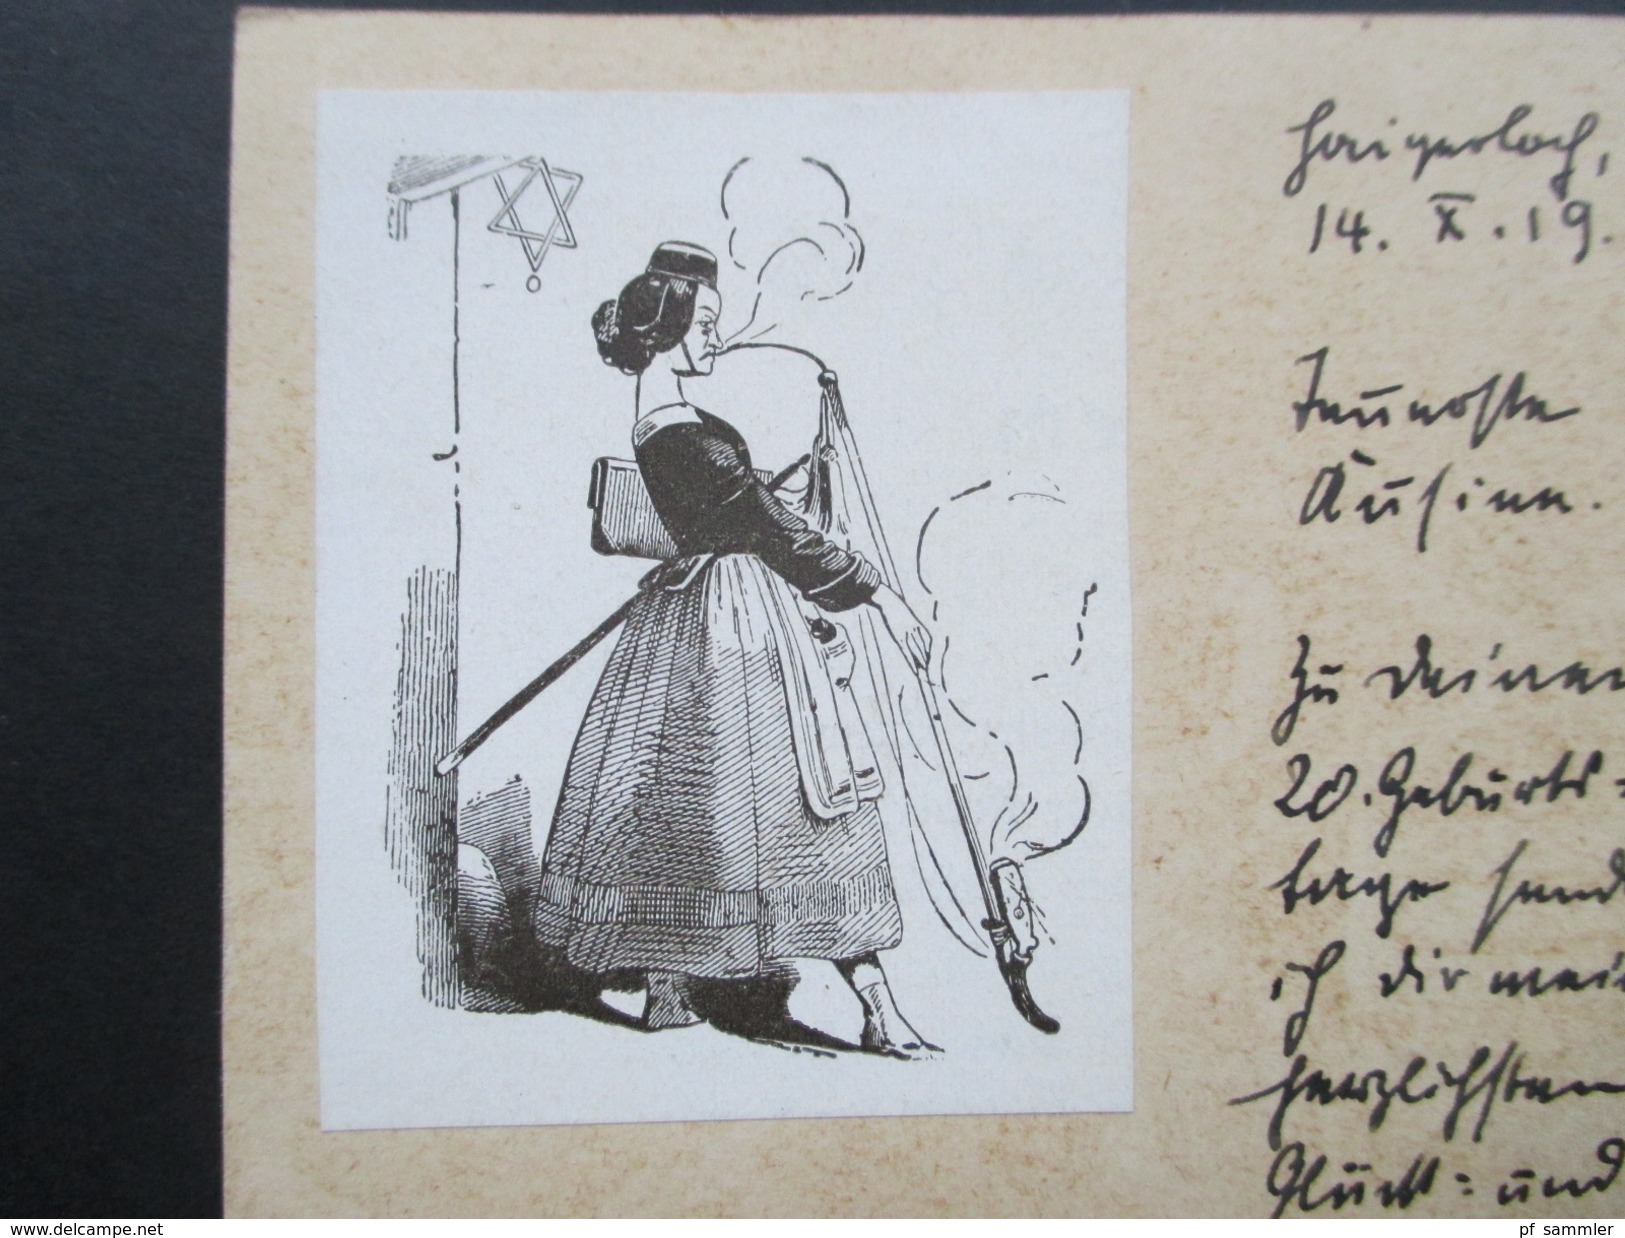 Haigerloch,
14. X. 19.
Teuerste
Kusine.
Zu Deinem
20. Geburts=
tage send
ich Dir mei
herzlichsten
Glück= und
www.delcampe.net
pf sammler